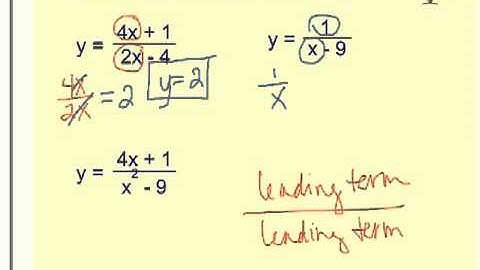 y = 4x + 1 / 2x - 4
4x / 2x = 2
y = 2
y = 1 / x - 9
1 / x
y = 4x + 1 / x² - 9
leading term
leading term